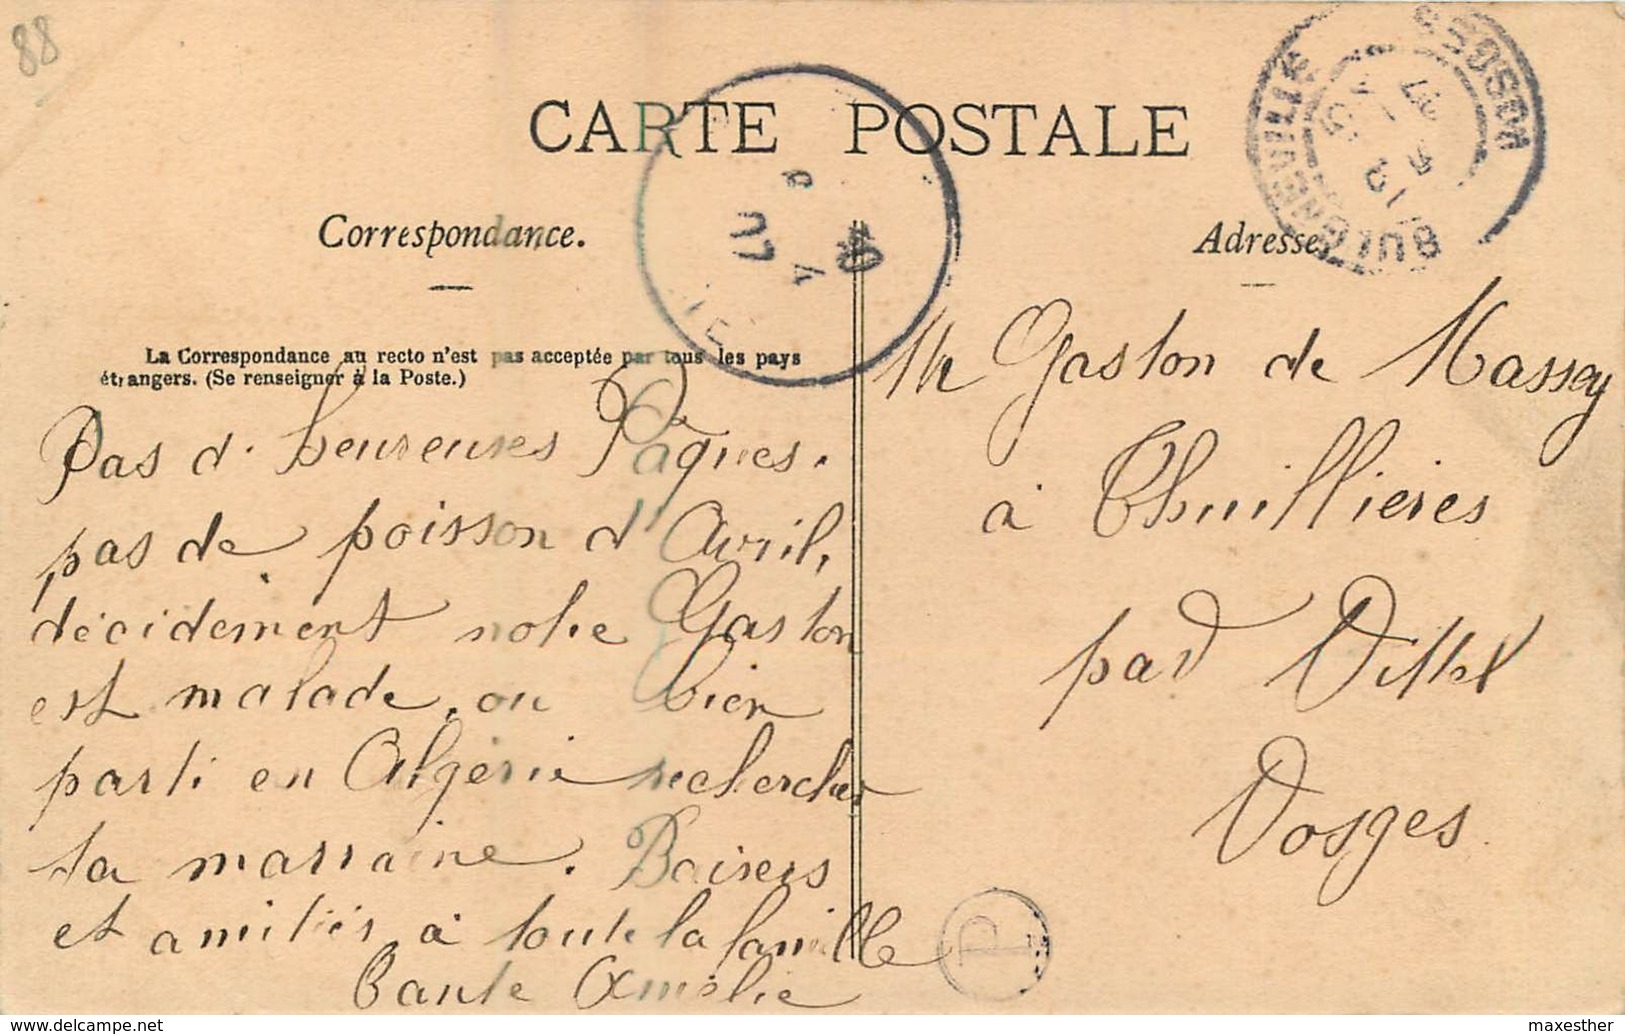 88
CARTE POSTALE
Correspondance.
Adresse.
La Correspondance au recto n'est pas acceptée par tous les pays
étrangers. (Se renseigner à la Poste.)
BULGNÉVILLE
VOSGES
Pas d'heureuses Pâques.
pas de poisson d'Avril,
décidément notre Gaston
est malade, ou bien
parti en Algérie rechercher
sa marraine. Baisers
et amitiés à toute la famille
Tante Amélie
Mr Gaston de Massey
à Thuillières
par Vittel
Vosges
www.delcampe.net
maxesther